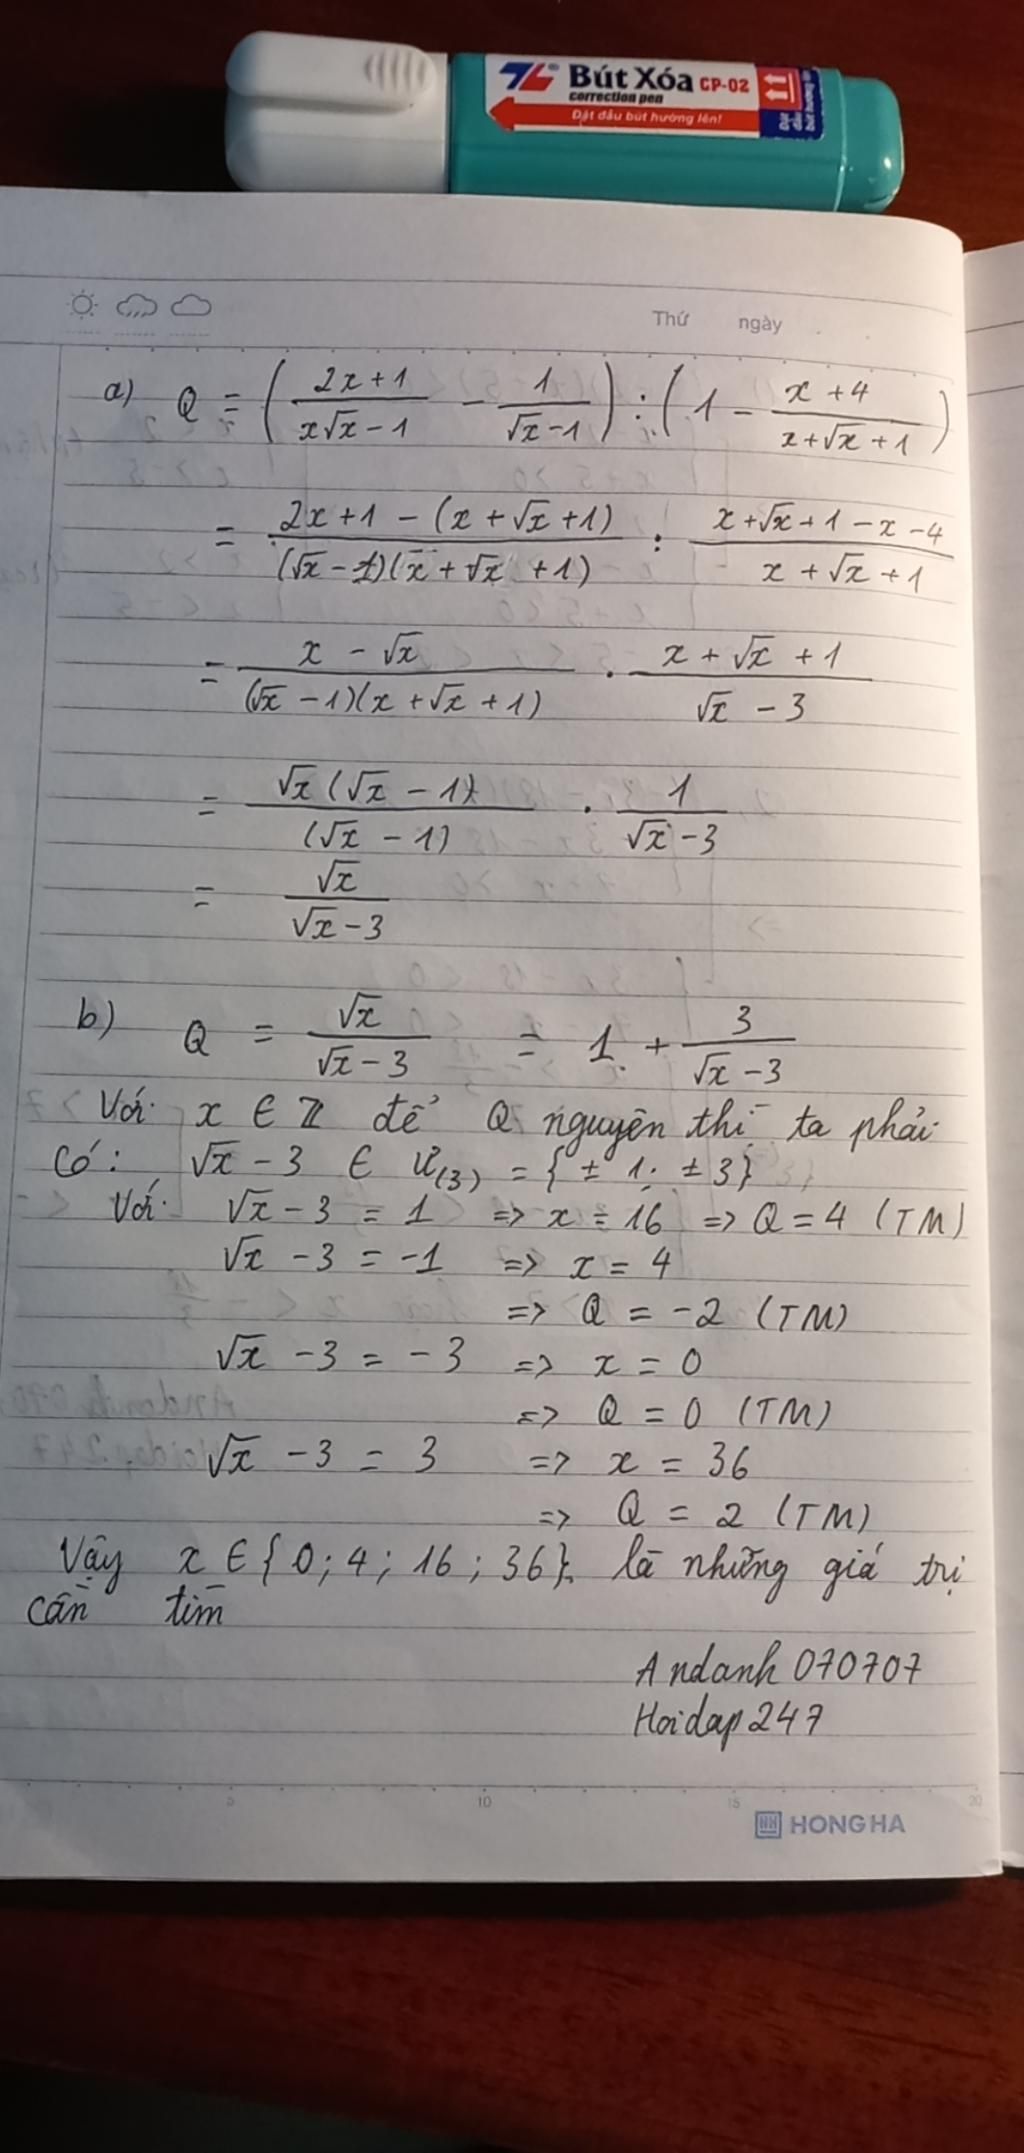 TL Bút Xóa CP-02
correction pen
Đặt đầu bút hướng lên!
Thứ ngày
a) Q = ( (2x+1)/(x√x-1) - 1/(√x-1) ) : ( 1 - (x+4)/(x+√x+1) )
= (2x+1-(x+√x+1))/((√x-1)(x+√x+1)) : (x+√x+1-x-4)/(x+√x+1)
= (x-√x)/((√x-1)(x+√x+1)) . (x+√x+1)/(√x-3)
= (√x(√x-1))/((√x-1)) . 1/(√x-3)
= √x/(√x-3)
b) Q = √x/(√x-3) = 1 + 3/(√x-3)
Với x ∈ Z để Q nguyên thì ta phải
có: √x-3 ∈ Ư(3) = {± 1; ± 3}
Với √x-3 = 1 => x = 16 => Q = 4 (TM)
√x-3 = -1 => x = 4
=> Q = -2 (TM)
√x-3 = -3 => x = 0
=> Q = 0 (TM)
√x-3 = 3 => x = 36
=> Q = 2 (TM)
Vậy x ∈ {0; 4; 16; 36} là những giá trị
cần tìm
Andanh 070707
Hoidap247
5 10 15 20
HONG HA